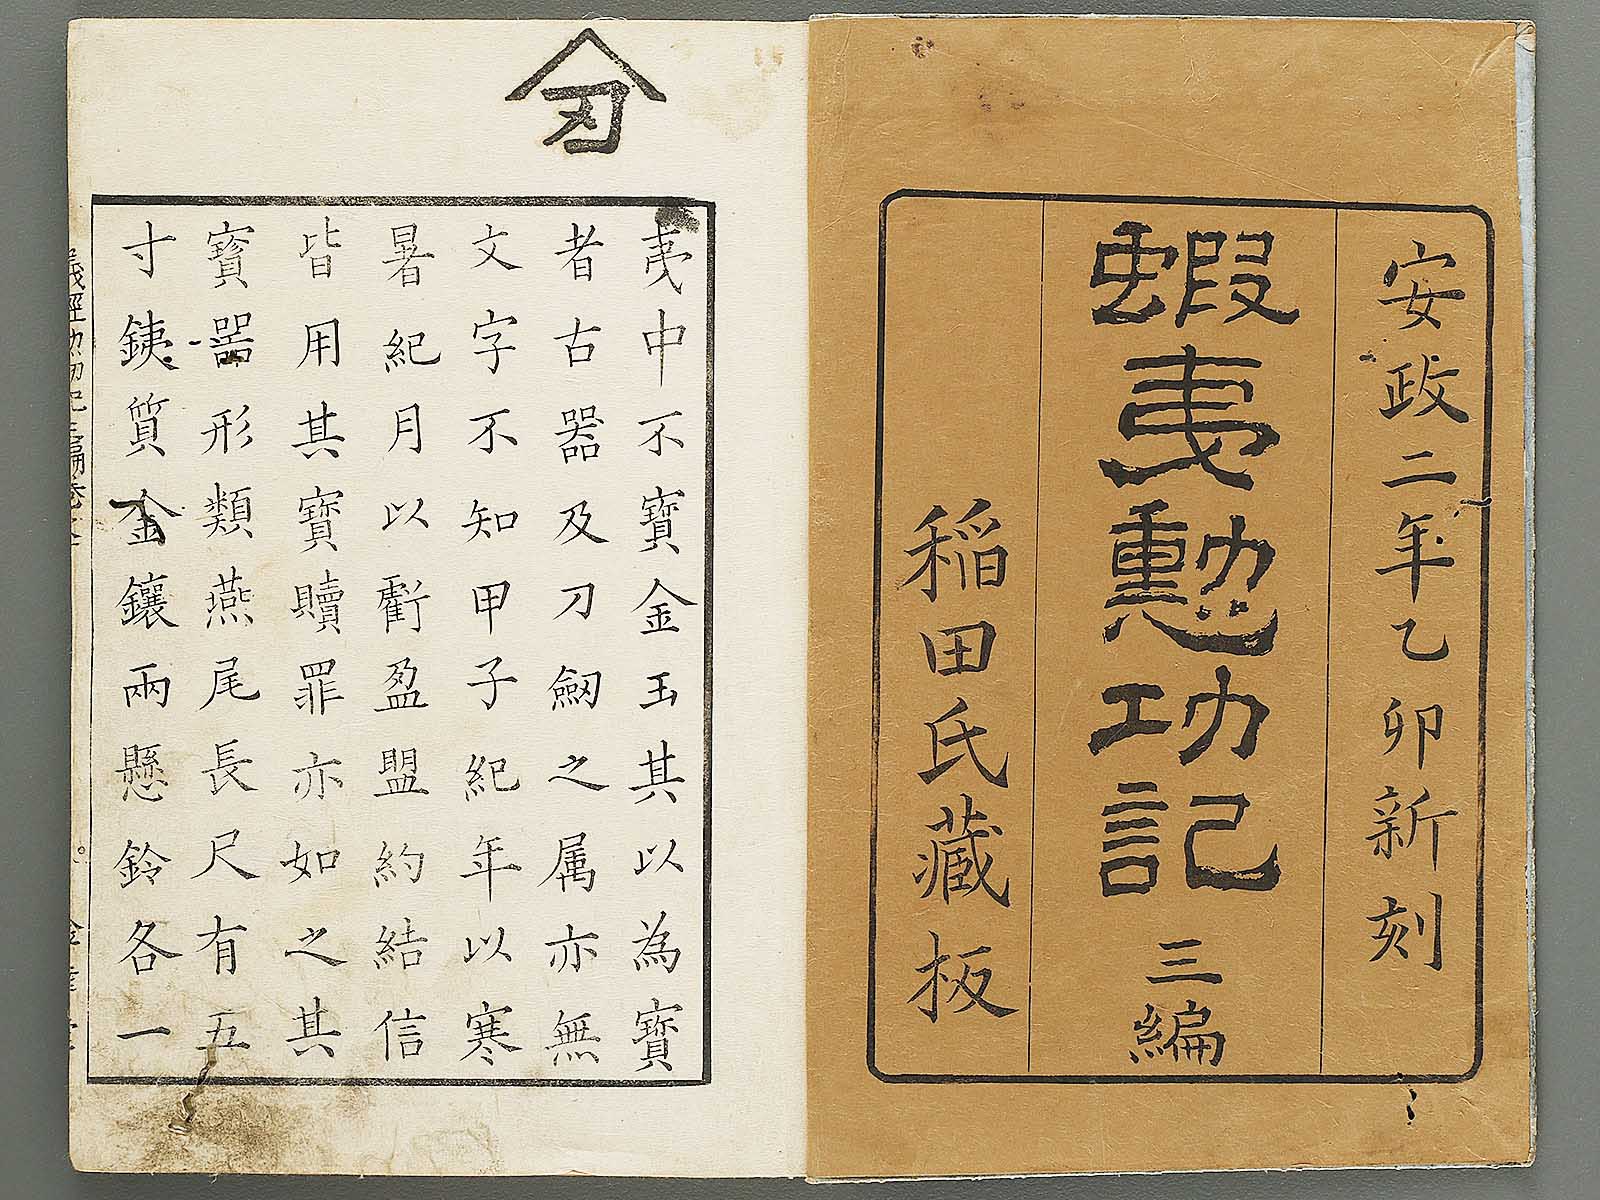 安政二年乙卯新刻
蝦夷勲功記 三編
稲田氏藏板
夷中不寶金玉其以為寶
者古器及刀劔之属亦無
文字不知甲子紀年以寒
暑紀月以虧盈盟約結信
皆用其寶贖罪亦如之其
寶器形類燕尾長尺有五
寸銕質金鑲兩懸鈴各一